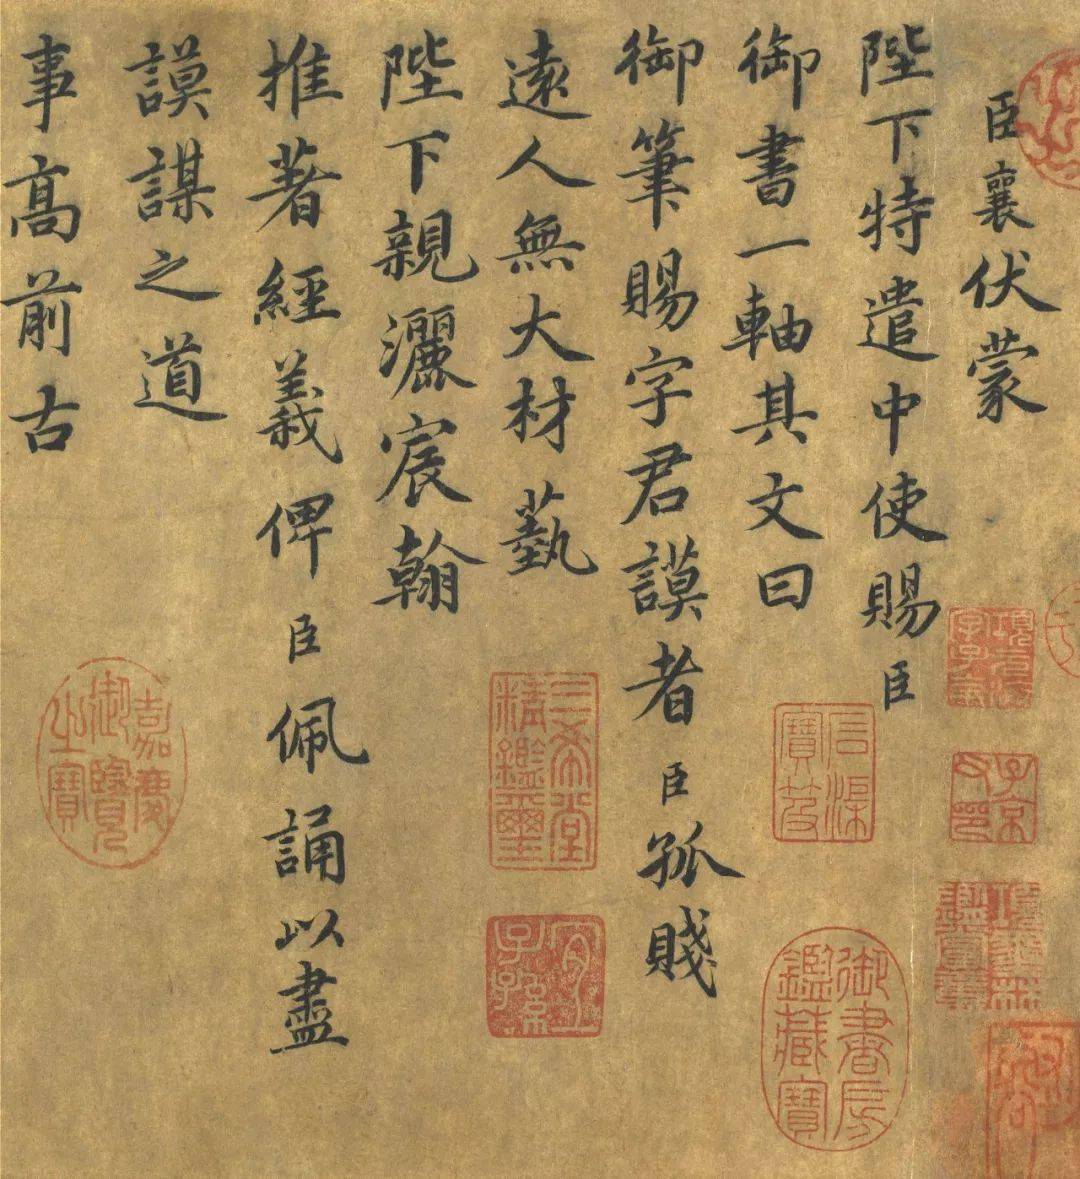 臣襄伏蒙
陛下特遣中使賜臣
御書一軸其文曰
御筆賜字君謨者臣孤賤
遠人無大材藝
陛下親灑宸翰
推著經義俾臣佩誦以盡
謨謀之道
事髙前古
子京父印
石渠寶笈
御書房鑑藏寶
三希堂精鑑璽
宜子孫
嘉慶御覽之寶